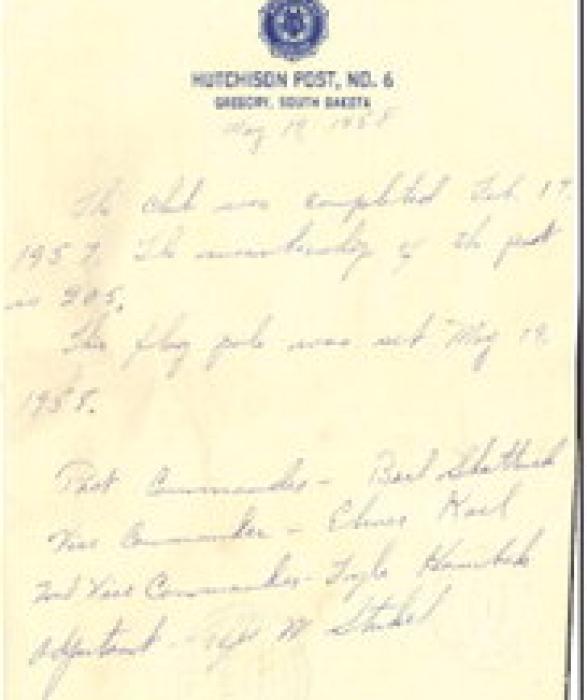 HUTCHISON POST, NO. 6
GREGORY, SOUTH DAKOTA
May 19, 1958
The club was completed Feb. 17,
1957. The membership of the post
is 205.
The flag pole was set May 19,
1958.
Post Commander - Shattuck
Vice Commander - Elmer Karl
2nd Vice Commander -
Adjutant - W